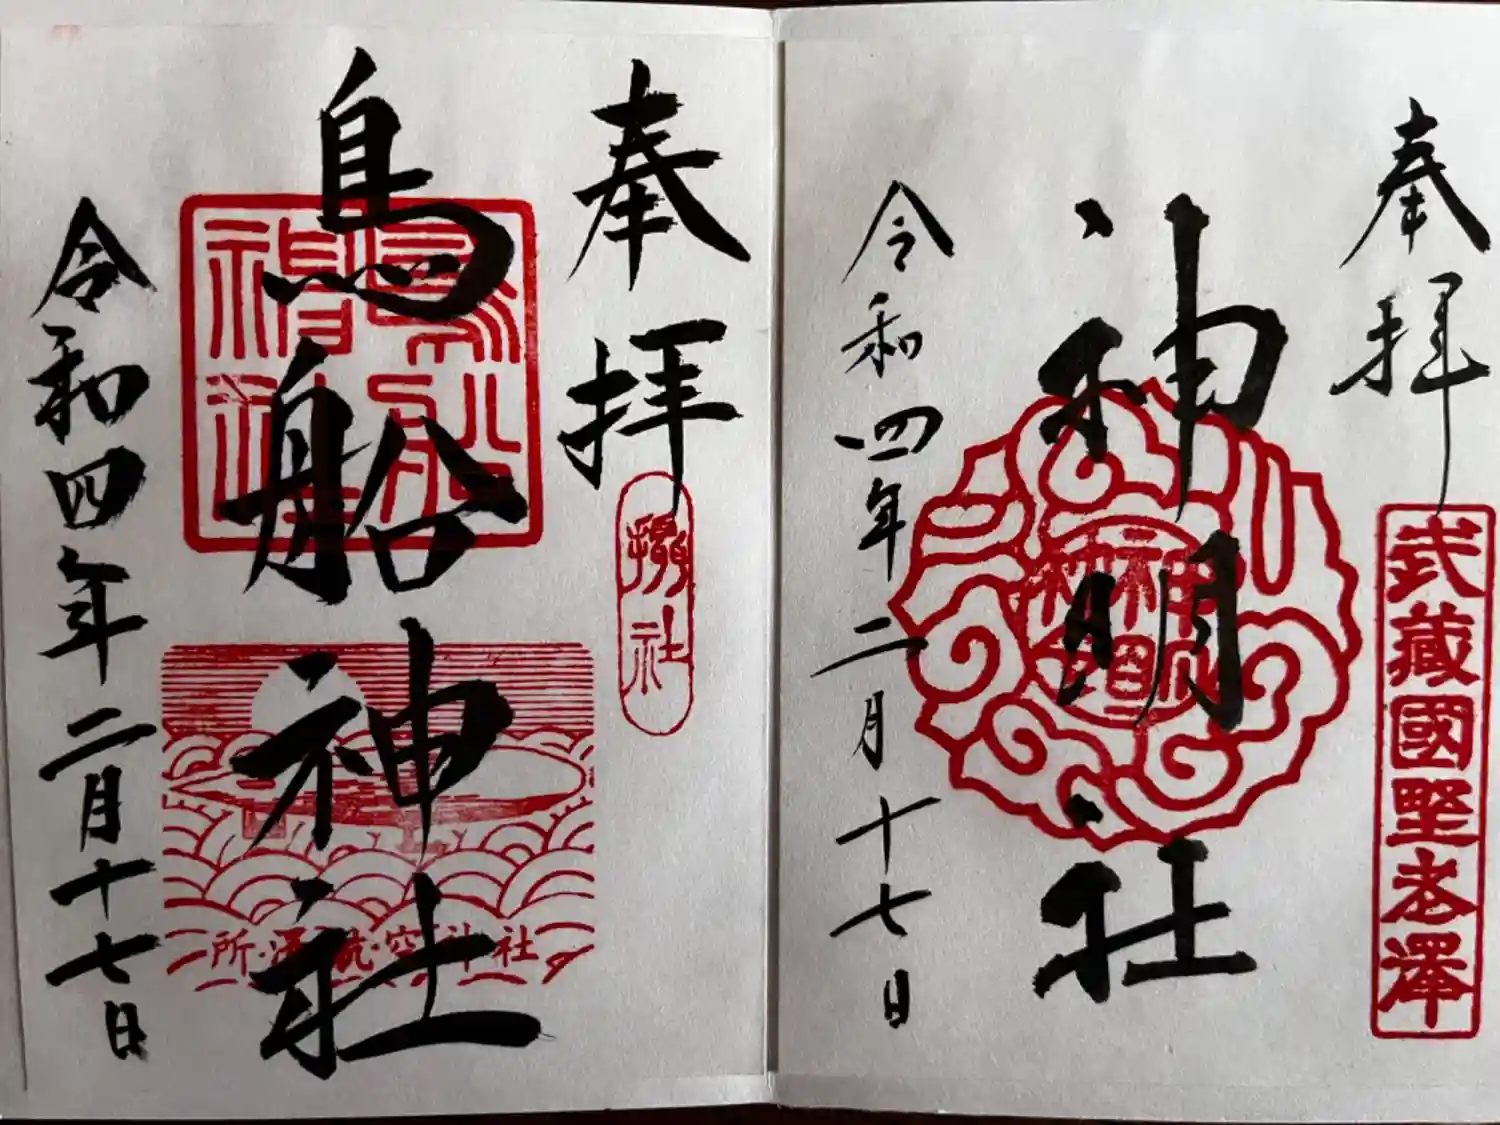 奉拝
武藏國野老澤
神明社
令和四年二月十七日
奉拝
攝社
鳥船神社
所澤航空神社
令和四年二月十七日